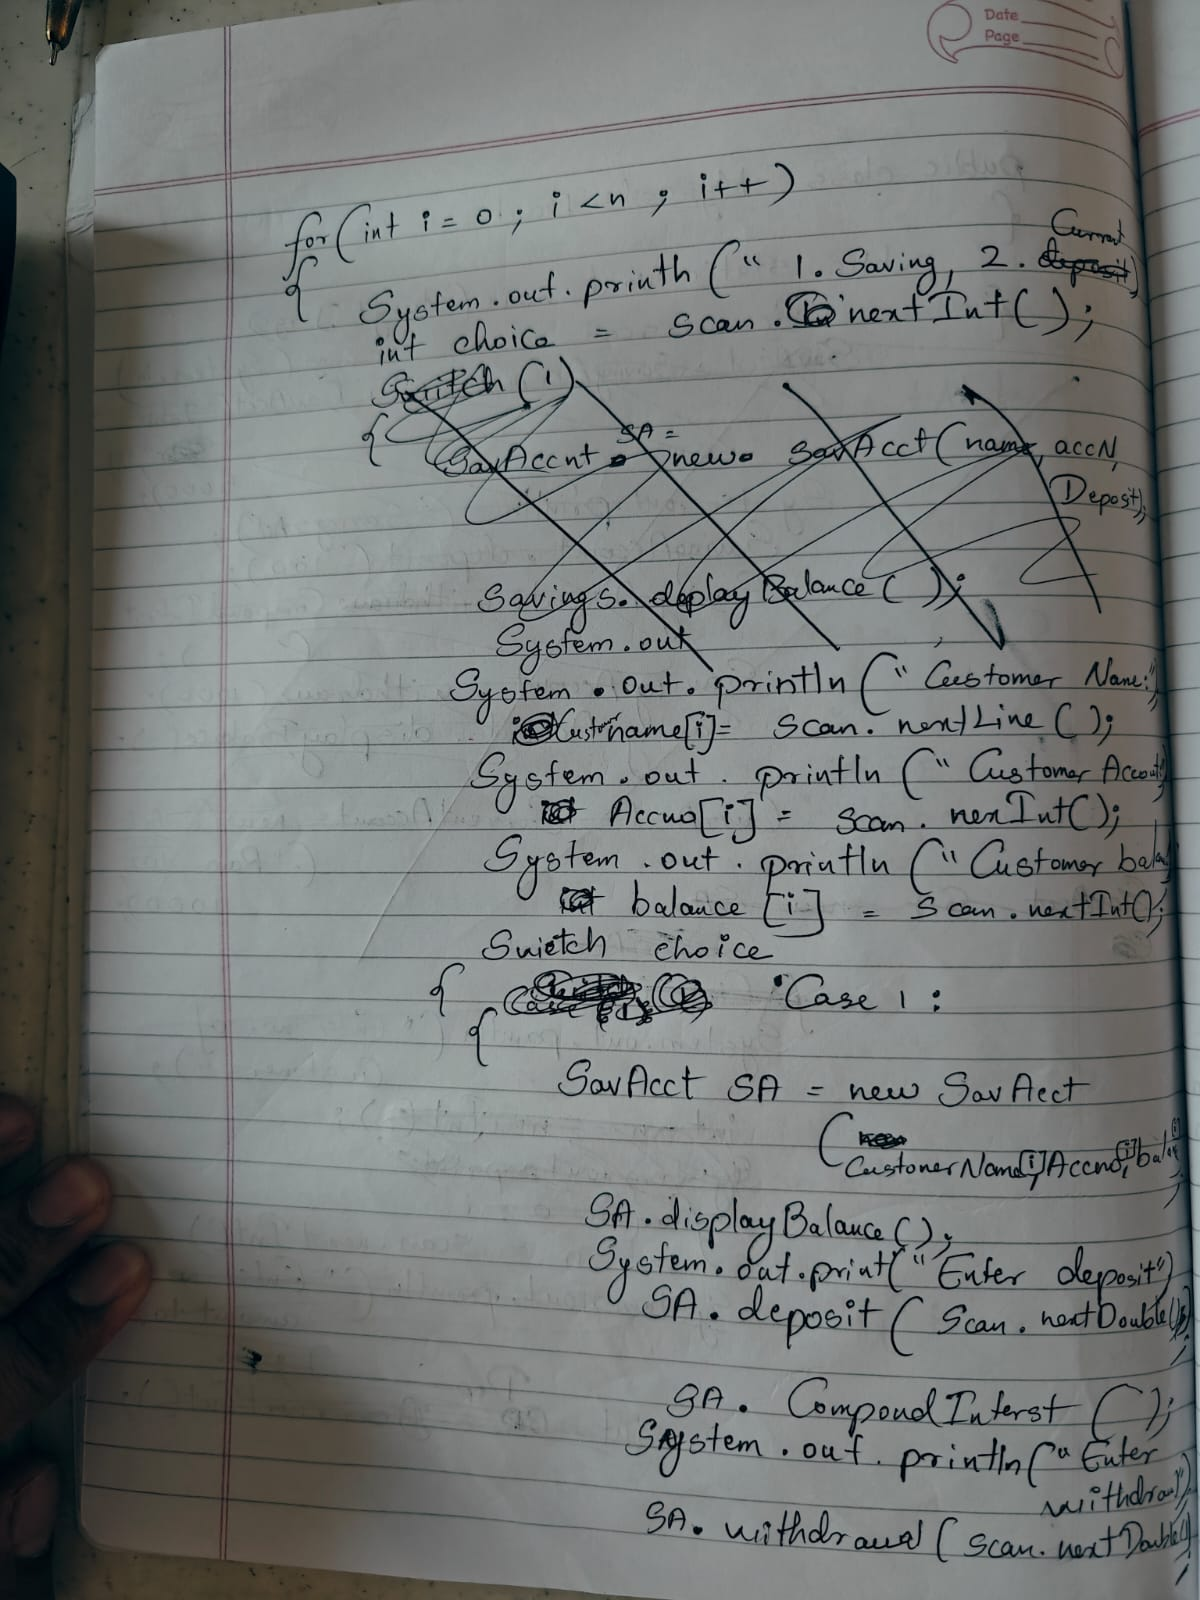 Date
Page
for(int i = 0 ; i <n ; i++)
{
System.out.println (" 1. Saving, 2. Current deposit)
int choice = scan . nextInt();
Switch (1)
{
SA =
SavAccnt new. SavAcct(name, accN,
Deposit);
Savings. display Balance ( );
System.out
System . out. println (" Customer Name:")
Custname[i]= Scan. nextLine ();
System. out . println (" Customer Account
Accno[i] = Scan . nexInt();
System . out . println (" Customer balan
balance [i] = Scan . nextInt();
Switch choice
{ Case 1 :
{
SavAcct SA = new SavAcct
(
CustonerName[i], Accno[i], balan[i]
SA. displayBalance ();
System. out.print("Enter deposit")
SA. deposit ( Scan. nextDouble()
SA. CompondInterst ();
System . out. println (" Enter
withdrawl")
SA. withdrawl ( Scan. next Double()